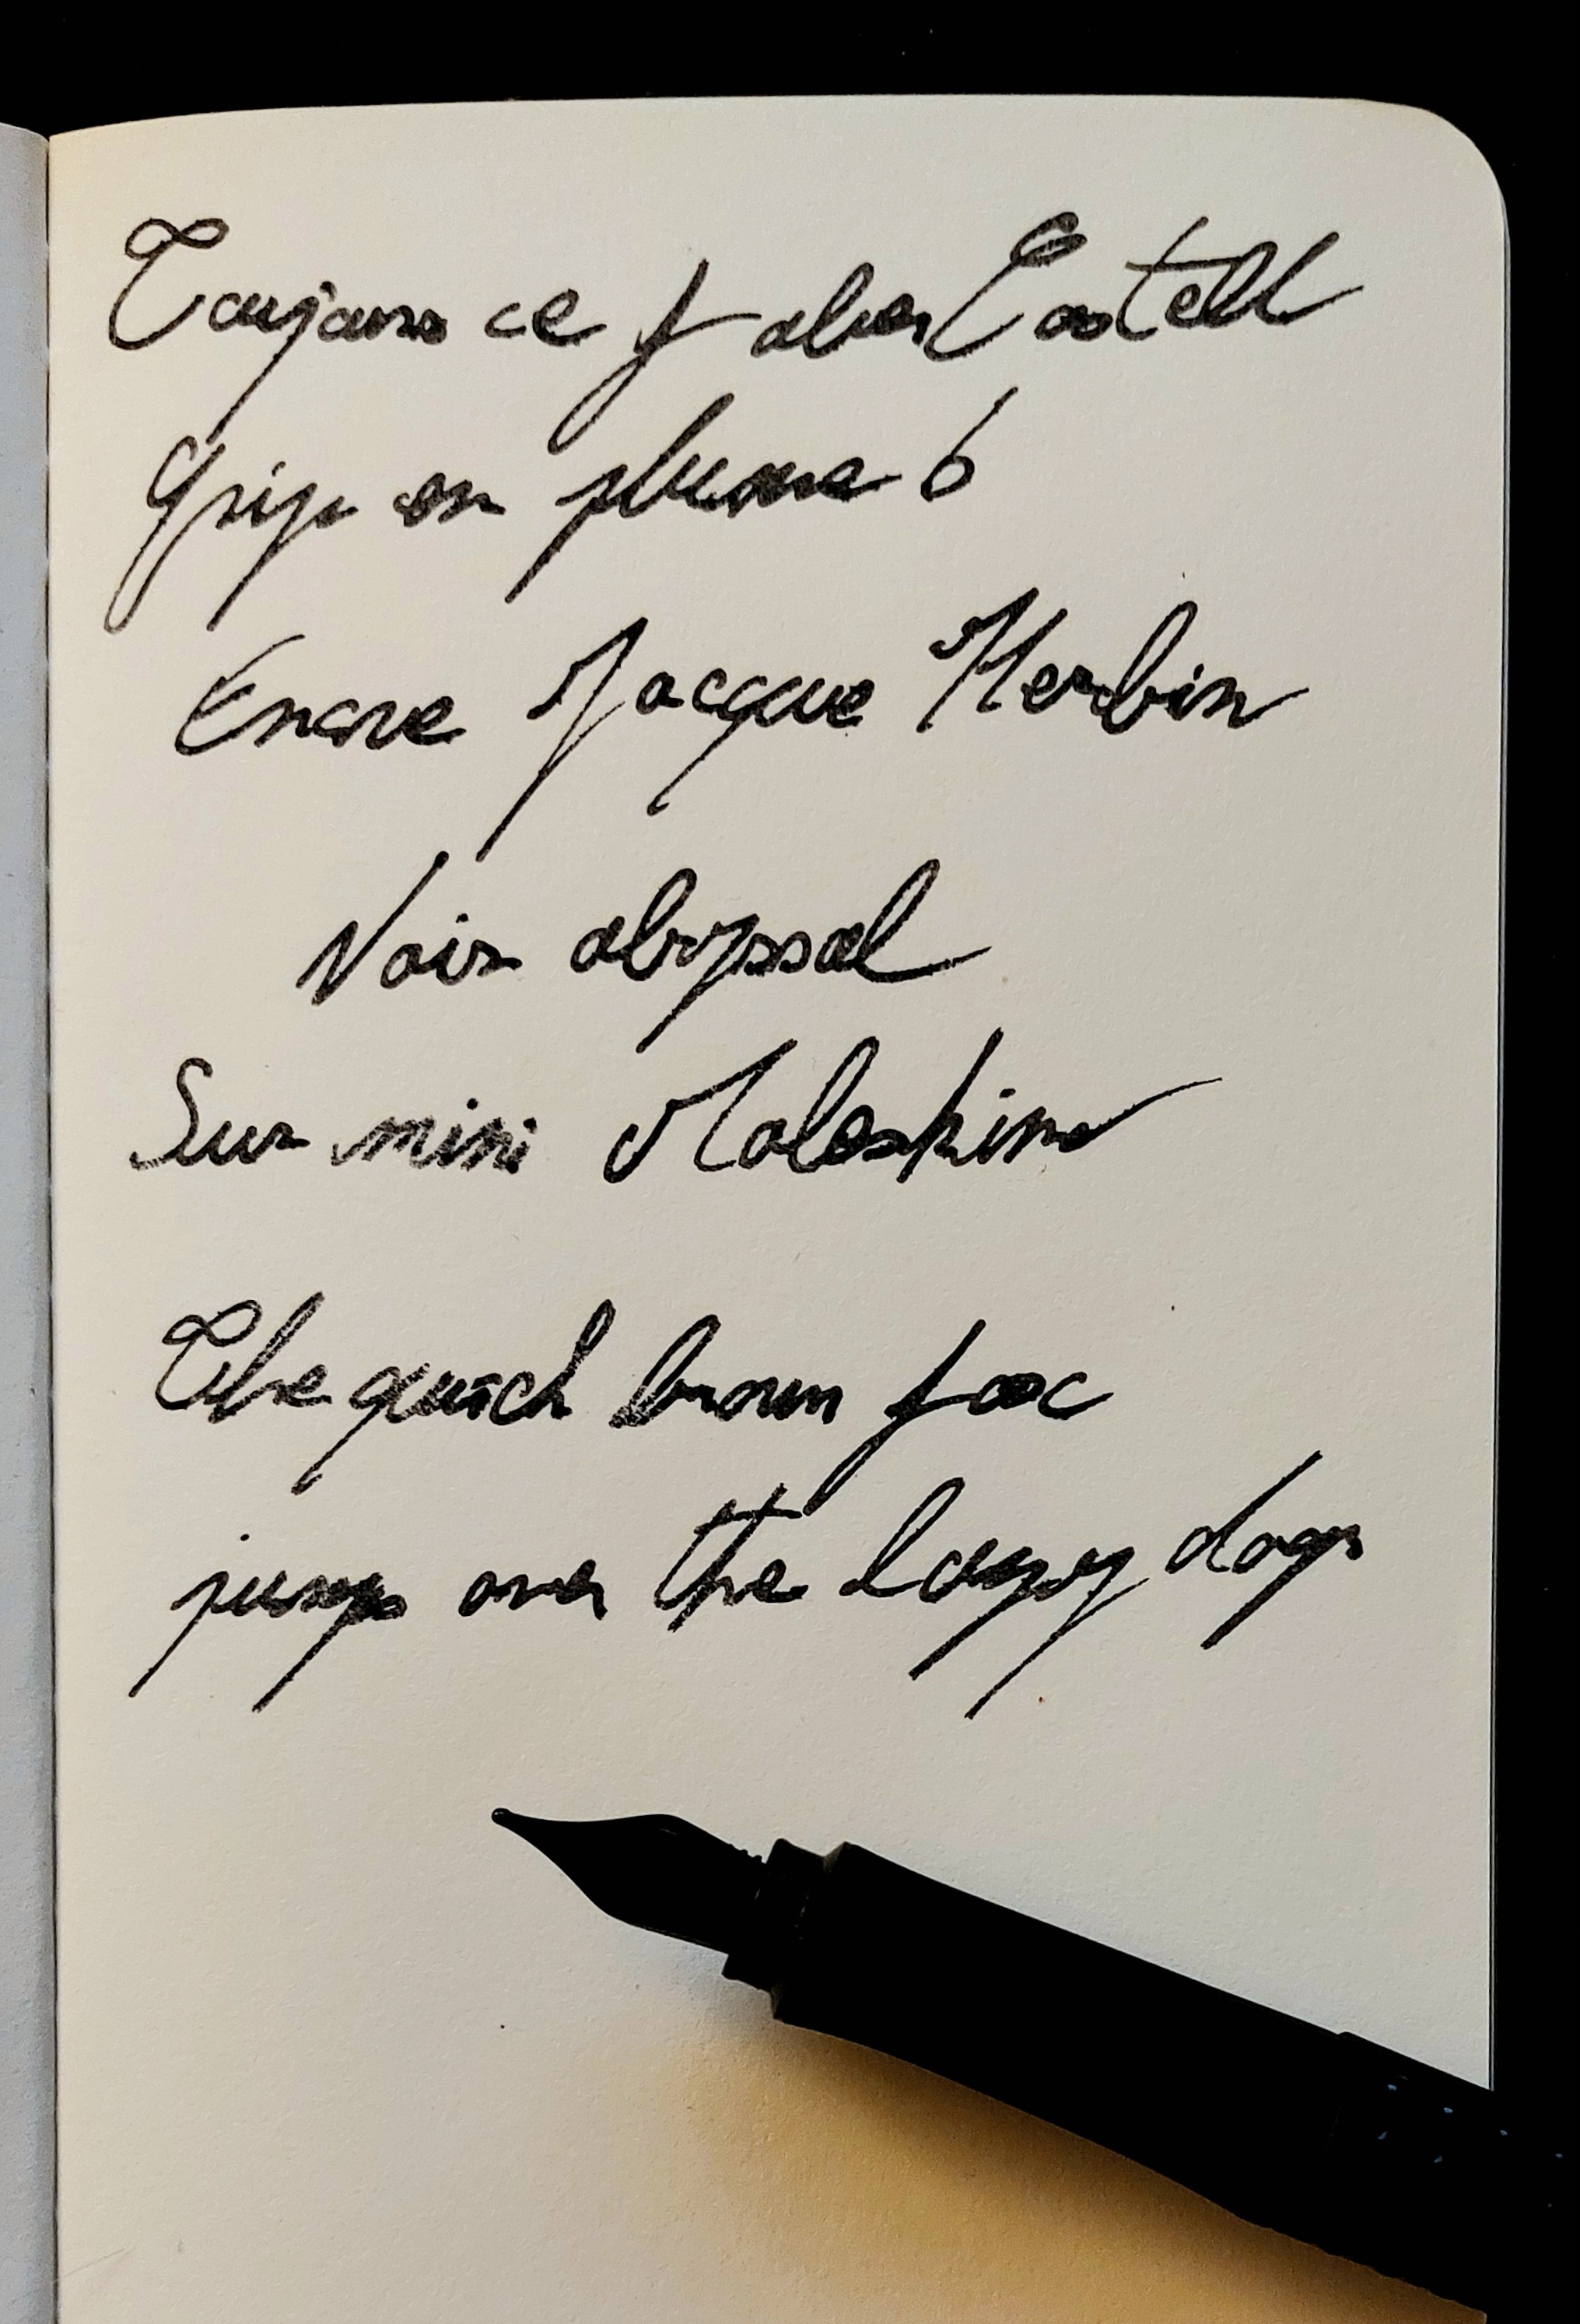 Toujours ce Faber Castell
Grip en plume B
Encre Jacque Herbin
Noir abyssal
Sur mini Moleskine
The quick brown fox
jumps over the lazy dog